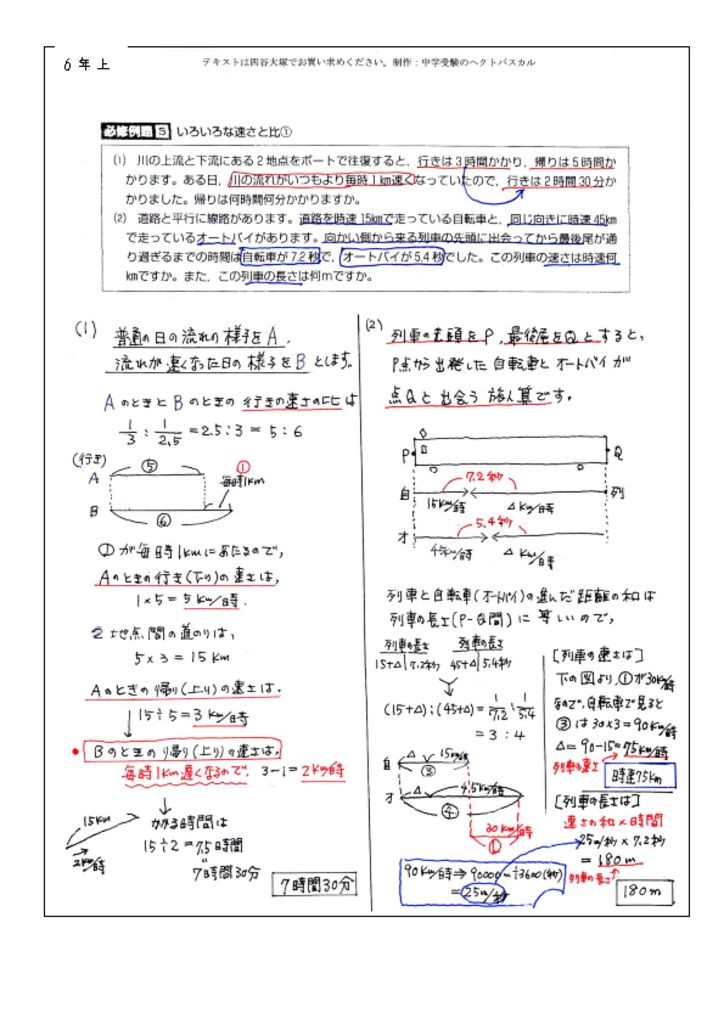 6年上
テキストは四谷大塚でお買い求めください。制作：中学受験のヘクトパスカル
必修例題5 いろいろな速さと比①
(1) 川の上流と下流にある2地点をボートで往復すると，行きは3時間かかり，帰りは5時間か
かります。ある日，川の流れがいつもより毎時1km速くなっていたので，行きは2時間30分か
かりました。帰りは何時間何分かかりますか。
(2) 道路と平行に線路があります。道路を時速15kmで走っている自転車と，同じ向きに時速45km
で走っているオートバイがあります。向かい側から来る列車の先頭に出会ってから最後尾が通
り過ぎるまでの時間は自転車が7.2秒で，オートバイが5.4秒でした。この列車の速さは時速何
kmですか。また，この列車の長さは何mですか。
(1) 普通の日の流れの様子をA，
流れが速くなった日の様子をBとします。
AのときとBのときの行きの速さの比は
1/3 : 1/2.5 = 2.5 : 3 = 5 : 6
(行き)
⑤ ①
A 毎時1km
B
⑥
①が毎時1kmにあたるので，
Aのときの行き(下り)の速さは，
1×5＝5km/時．
2地点間の道のりは，
5×3＝15km
Aのときの帰り(上り)の速さは．
15÷5＝3km/時
Bのときの帰り(上り)の速さは，
毎時1km遅くなるので． 3−1＝2km/時
15km
2km/時
かかる時間は
15÷2＝7.5時間
7時間30分
7時間30分
(2) 列車の先頭をP，最後尾をQとすると，
P点から出発した自転車とオートバイが
点Qと出会う旅人算です。
P Q
7.2秒
自 15km/時 △km/時 列
5.4秒
オ 45km/時 △km/時
列車と自転車(オートバイ)の進んだ距離の和は
列車の長さ(P-Q間)に等しいので，
列車の長さ 列車の長さ
15+△ 7.2秒 45+△ 5.4秒
(15+△):(45+△)＝1/7.2 : 1/5.4
＝3：4
自 △ 15km/時
③
オ △ 45km/時
④
30km/時
①
90km/時⇒90000m÷3600(秒)
＝25m/秒
[列車の速さは]
下の図より，①が30km/時
なので，自転車で見ると
③は30×3＝90km/時
△＝90−15＝75km/時
列車の速さ
時速75km
[列車の長さは]
速さの和×時間
25m/秒×7.2秒
＝180m
列車の長さ
180m